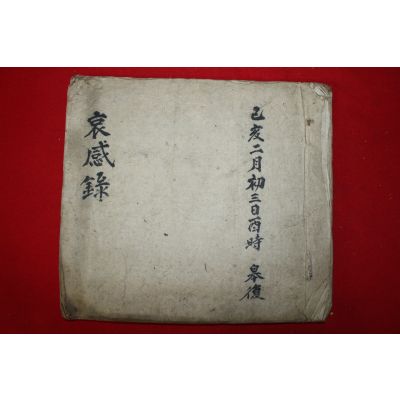 己亥二月初三日酉時 皐復
哀感錄